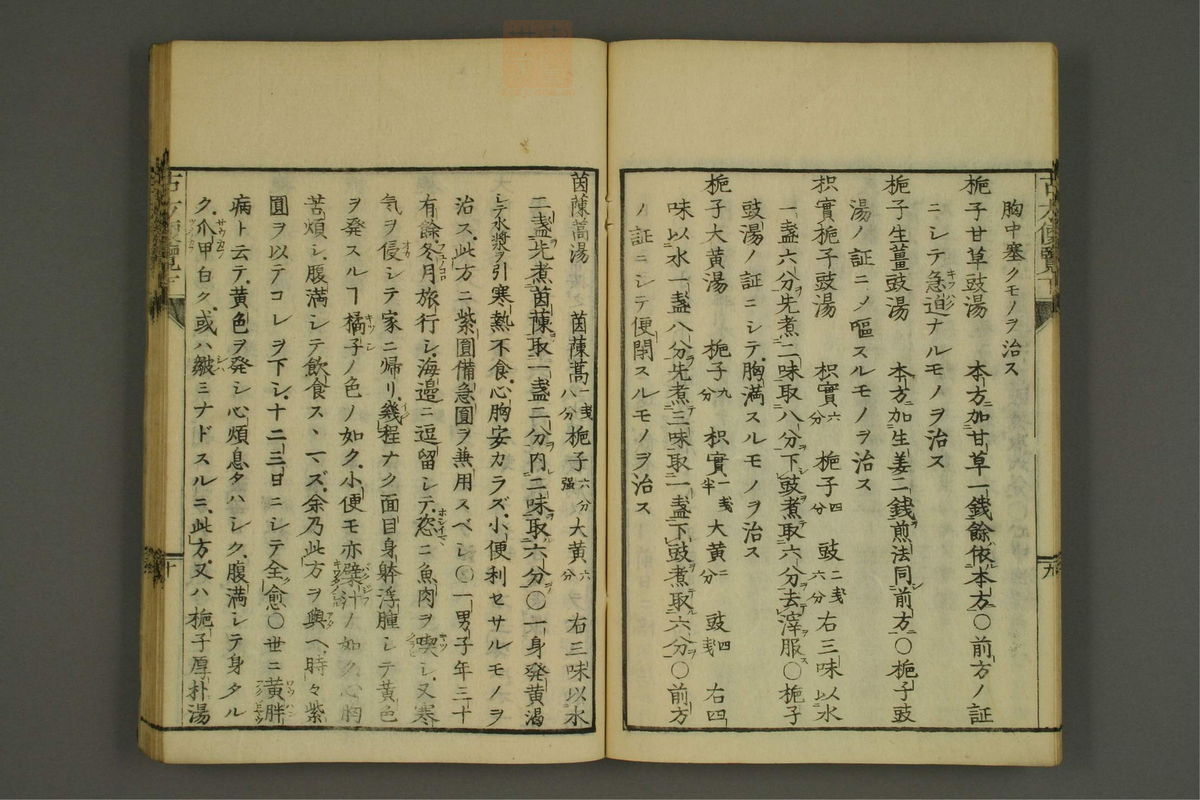 胸中塞クモノヲ治ス
梔子甘草豉湯　本方加甘草一錢餘依本方〇前方ノ証
ニシテ急迫ナルモノヲ治ス
梔子生薑豉湯　本方加生姜二錢煎法同前方〇梔子豉
湯ノ証ニノ嘔スルモノヲ治ス
枳實梔子豉湯　枳實六分　梔子四分　豉二戔六分　右三味以水
一盞六分先煮二味取八分下豉煮取六分去滓服〇梔子
豉湯ノ証ニシテ胸満スルモノヲ治ス
梔子大黄湯　梔子九分　枳實一戔半　大黄二分　豉四戔　右四
味以水一盞八分先煮三味取一盞下豉煮取六分〇前方
ノ証ニシテ便閉スルモノヲ治ス
九
茵蔯蒿湯　茵蔯蒿一戔八分　梔子六分强　大黄六分　右三味以水
二盞先煮茵蔯取一盞二分内二味取六分〇一身発黄渇
シテ水漿ヲ引寒熱不食心胸安カラズ小便利セサルモノヲ
治ス此方ニ紫圓備急圓ヲ兼用スベシ〇一男子年三十
有餘冬月旅行シ海邉ニ逗留シテ恣ニ魚肉ヲ喫シ又寒
気ヲ侵シテ家ニ帰リ幾程ナク面目身躰浮腫シテ黄色
ヲ発スルヿ橘子ノ色ノ如ク小便モ亦檗汁ノ如ク心胸
苦煩シ腹満シテ飲食スヽマズ余乃此方ヲ與ヘ時々紫
圓ヲ以テコレヲ下シ十二三日ニシテ全愈〇世ニ黄胖
病ト云テ黄色ヲ発シ心煩息タハシク腹満シテ身タル
ク爪甲白ク或ハ皺ミナドスルニ此方又ハ梔子厚朴湯
十